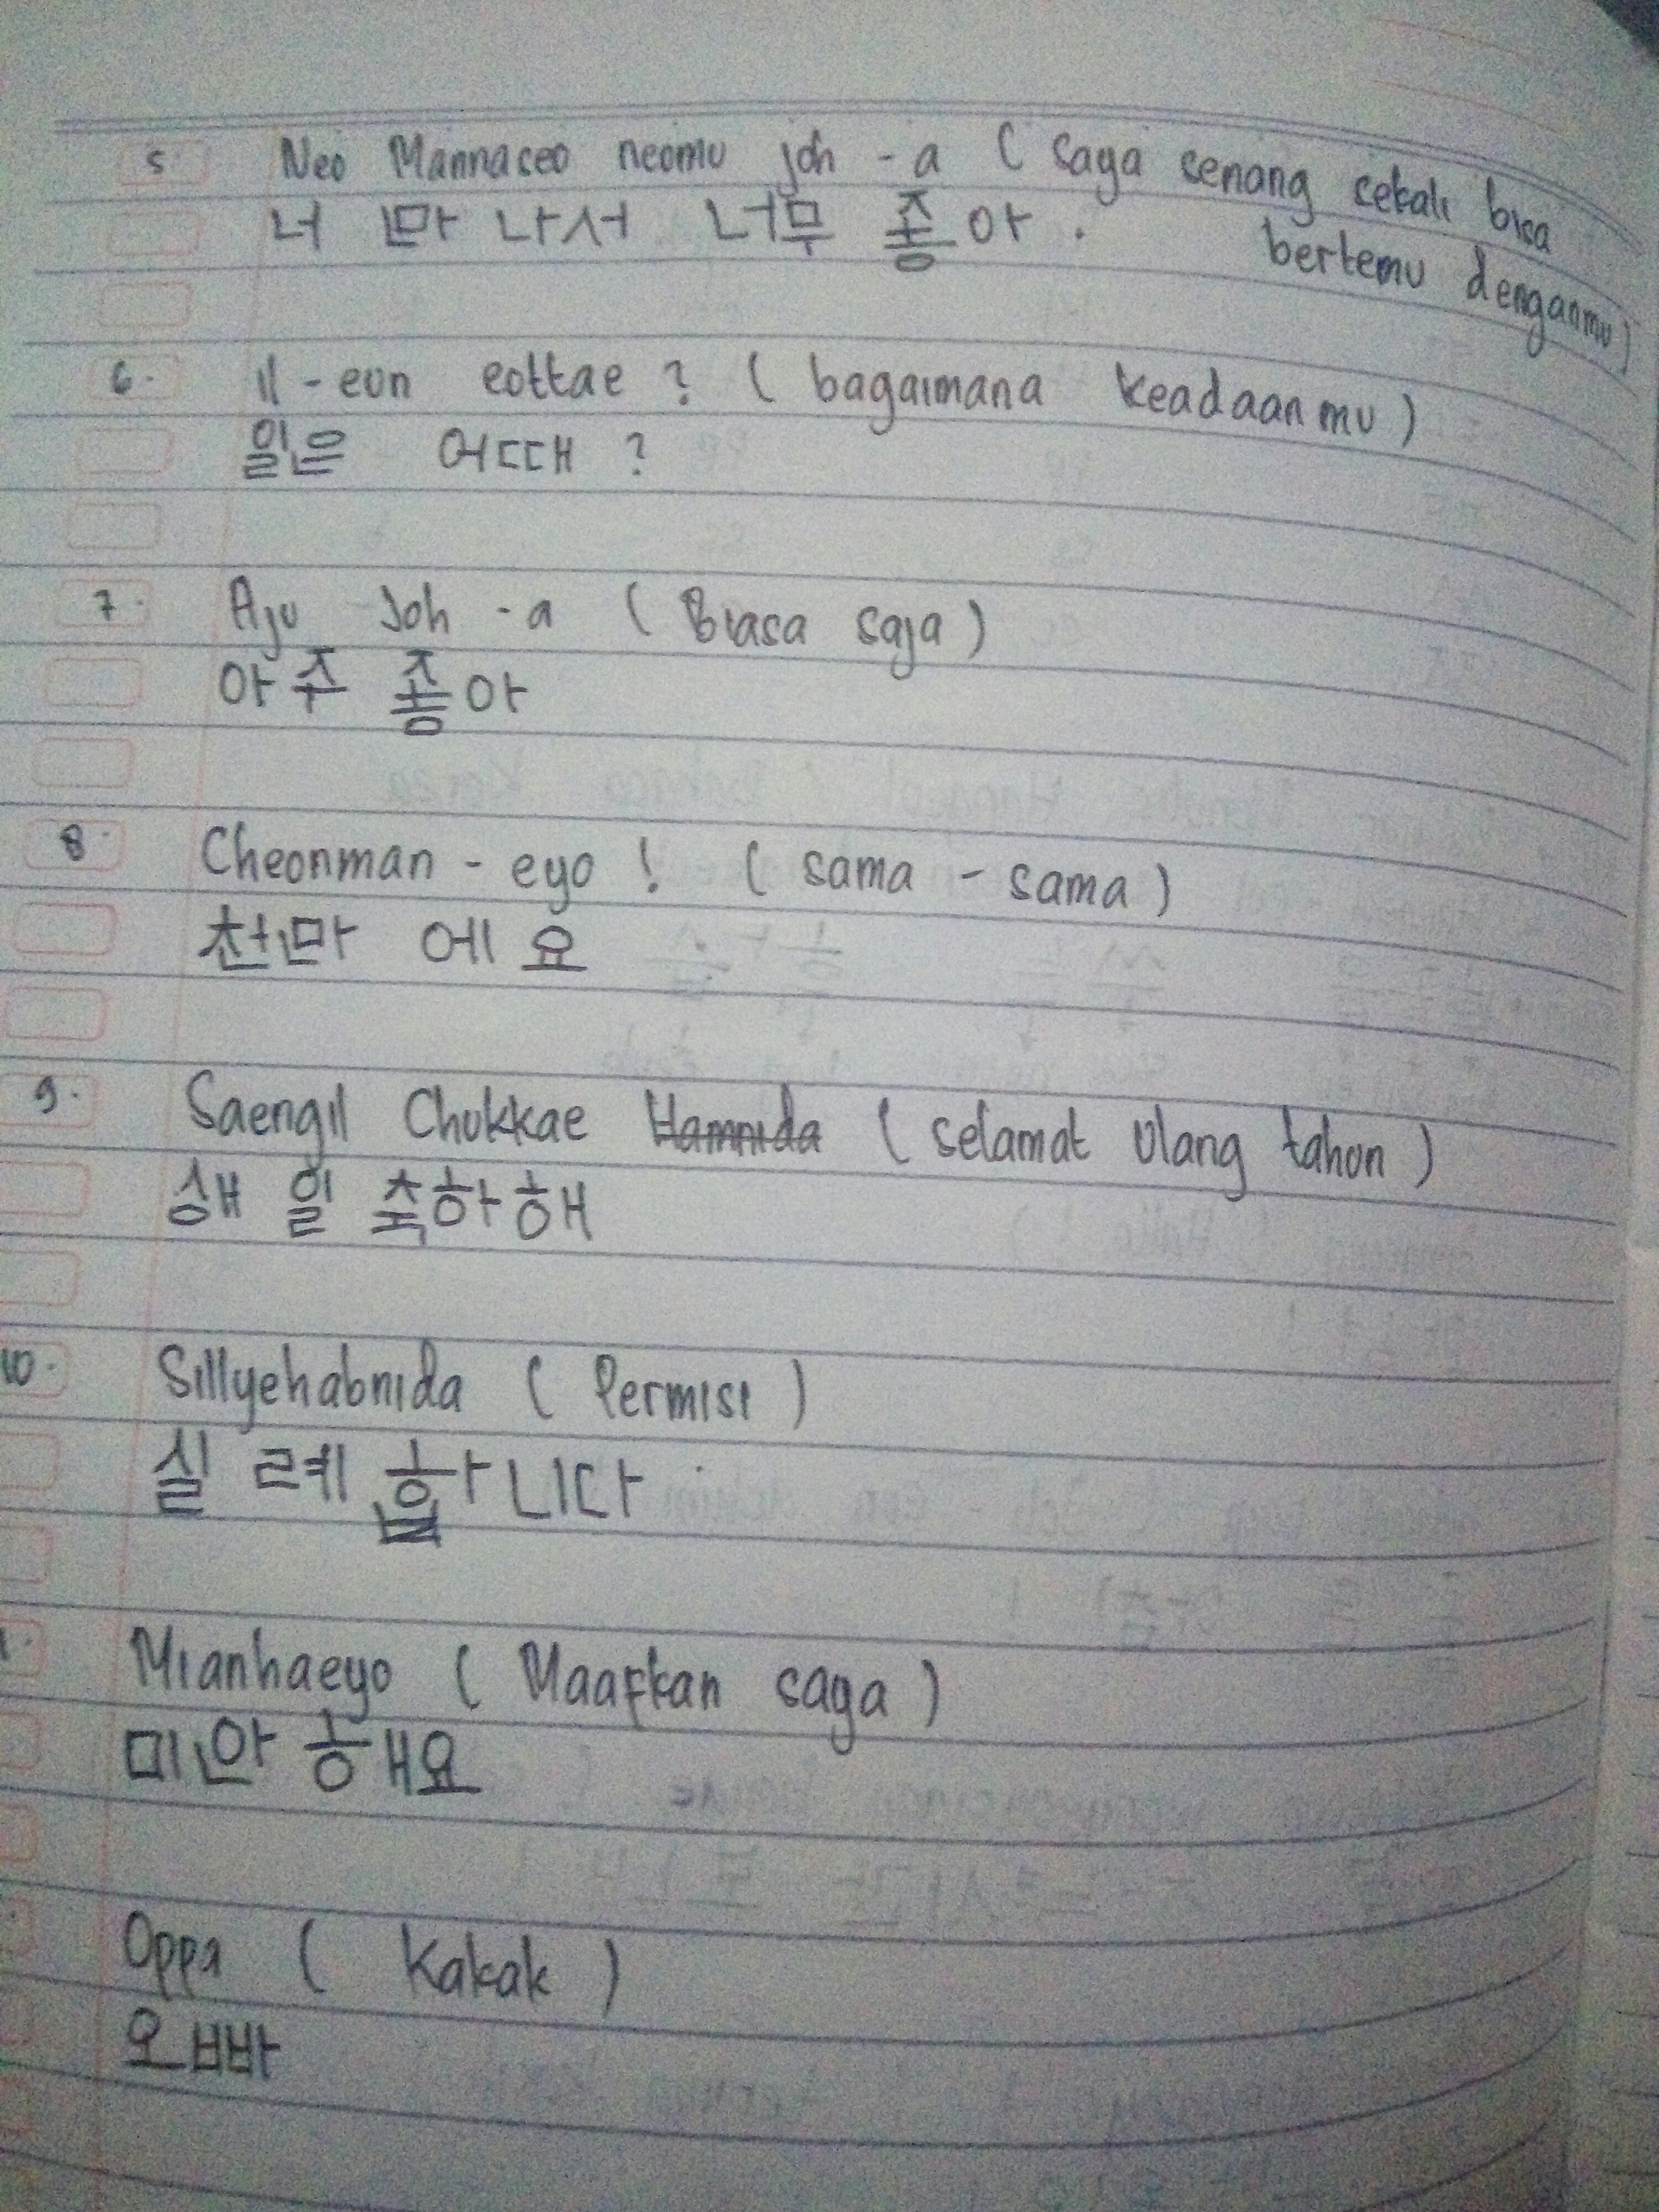 5. Neo Mannaseo neomu joh - a ( Saya senang sekali bisa
bertemu denganmu )
너 만 나서 너무 좋 아 .
6. il - eun eottae ? ( bagaimana keadaan mu )
일은 어때 ?
7. Aju Joh - a ( Biasa saja )
아주 좋아
8. Cheonman - eyo ! ( sama - sama )
천만 에 요
9. Saengil Chukkae Hamnida ( selamat Ulang tahun )
생 일 축하해
10. Sillyehabnida ( Permisi )
실 례 합니다
Mianhaeyo ( Maafkan saya )
미안 해요
Oppa ( Kakak )
오빠